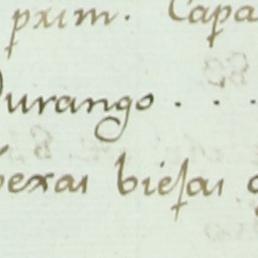 prim. Capa
Durango . . .
texas viejas